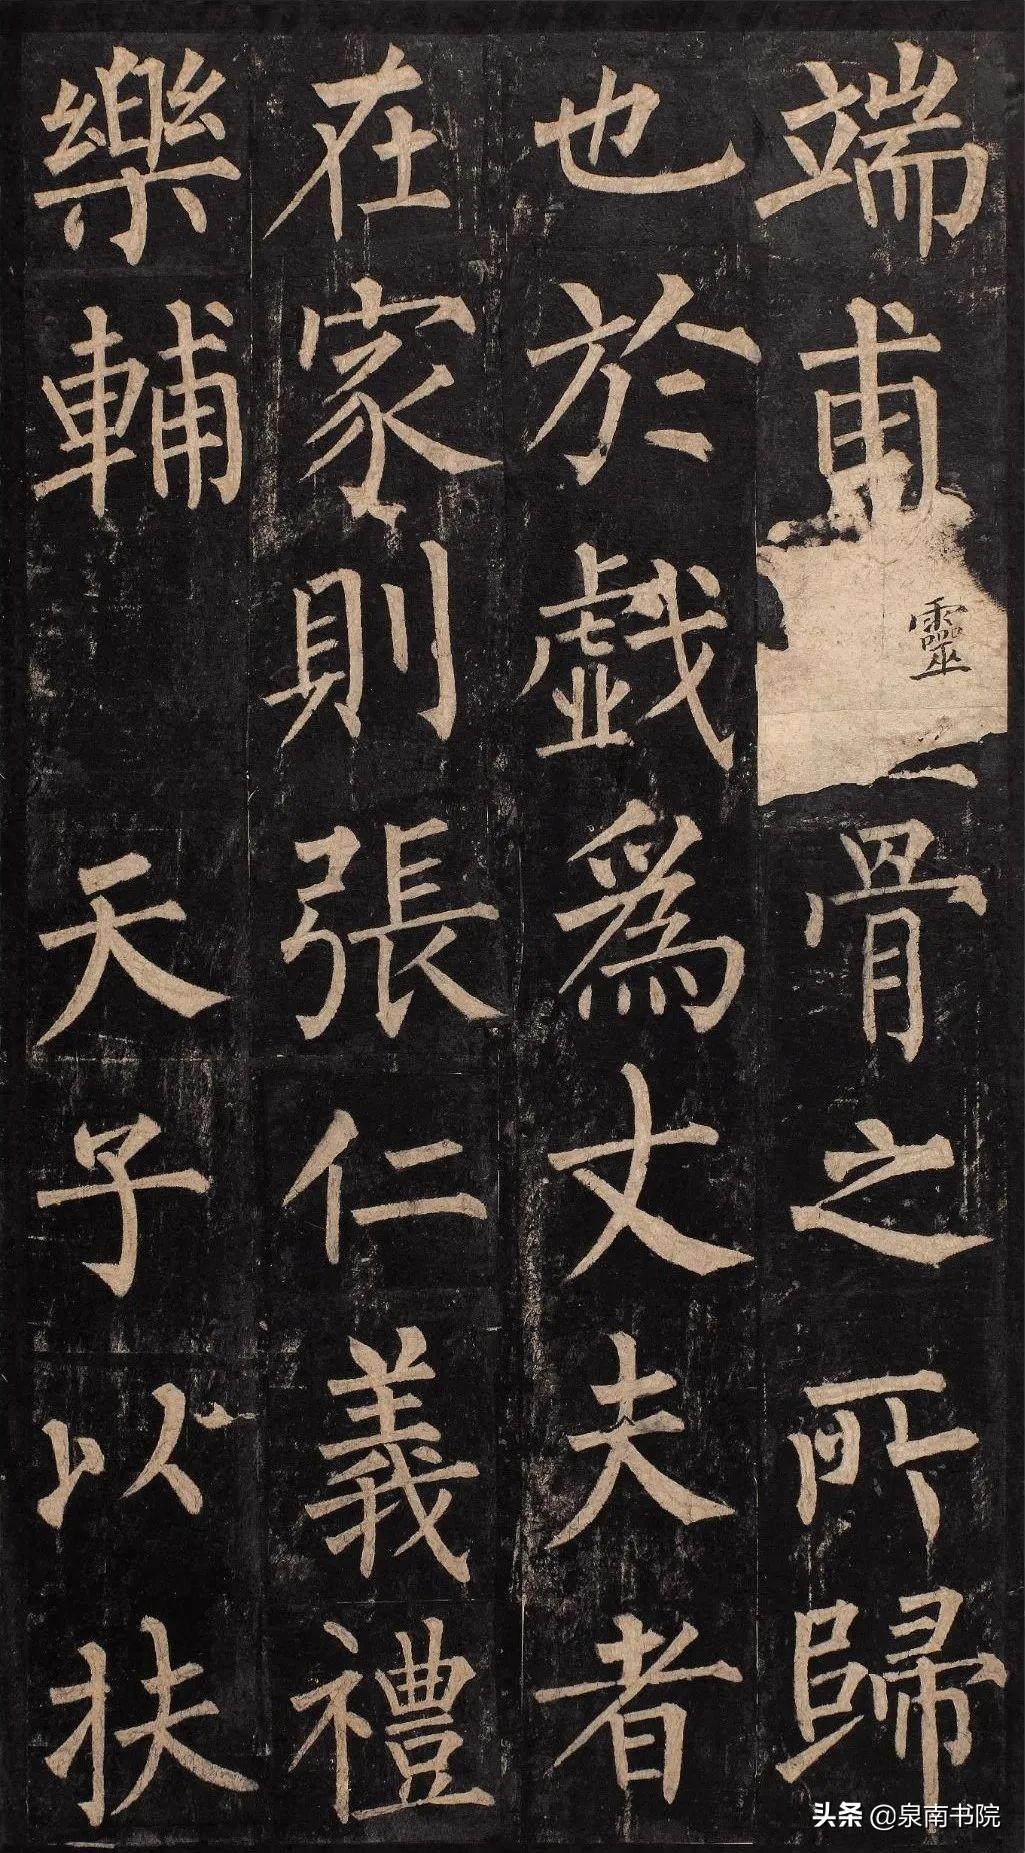 端甫靈骨之所歸
也於戲為丈夫者
在家則張仁義禮
樂輔天子以扶
头条 @泉南书院